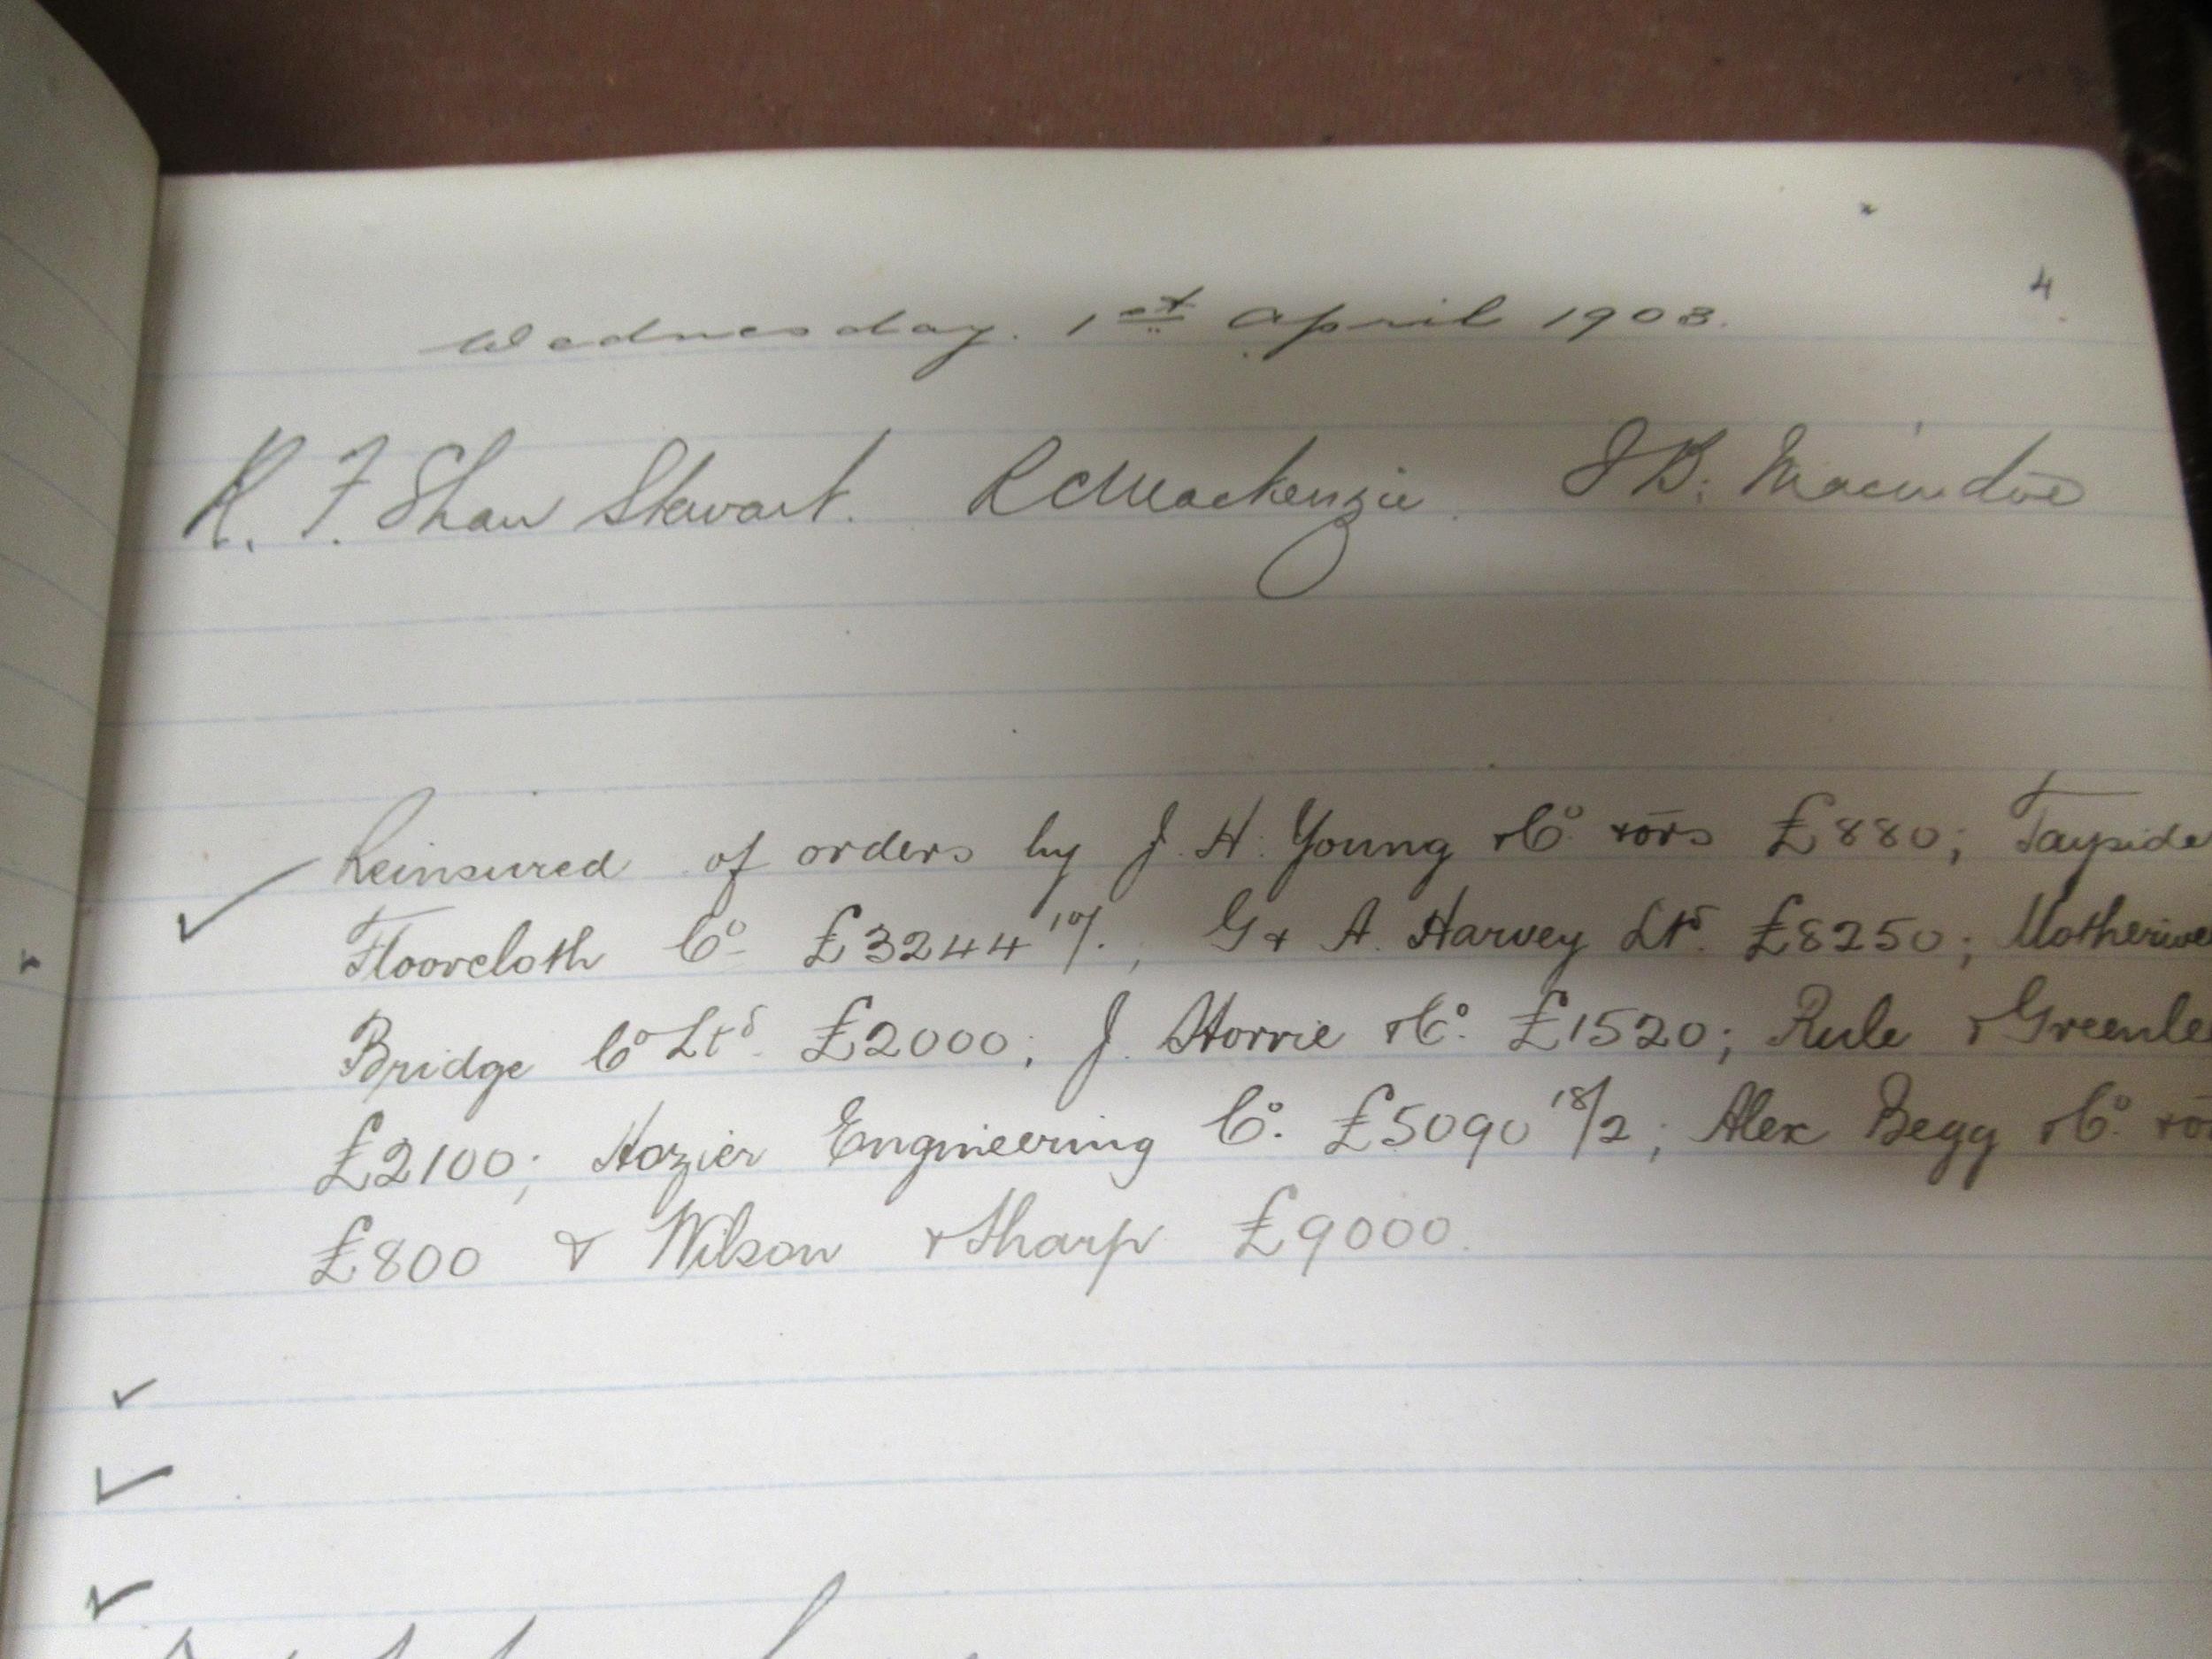 4
Wednesday. 1st April 1903.
R. F. Shaw Stewart. R C Mackenzie. J B. Macindoe
Reinsured of orders by J. H. Young & Co. &ors £880; Tayside
Floorcloth Co. £3244 10/.; G & A. Harvey Ltd. £8250; Motherwe
Bridge Co Ltd. £2000; J. Horrie & Co. £1520; Rule & Greenle
£2100; Hozier Engineering Co. £5090 18/2; Alex Begg & Co.
£800 & Wilson & Sharp £9000.